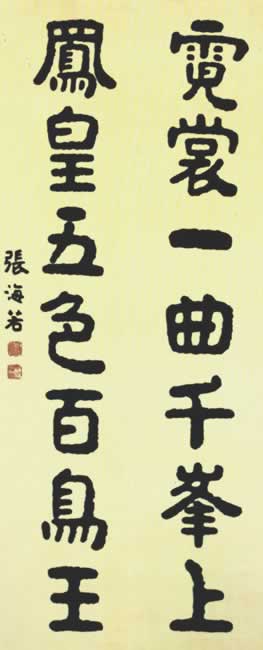 霓裳一曲千峯上
鳳皇五色百鳥王
張海若